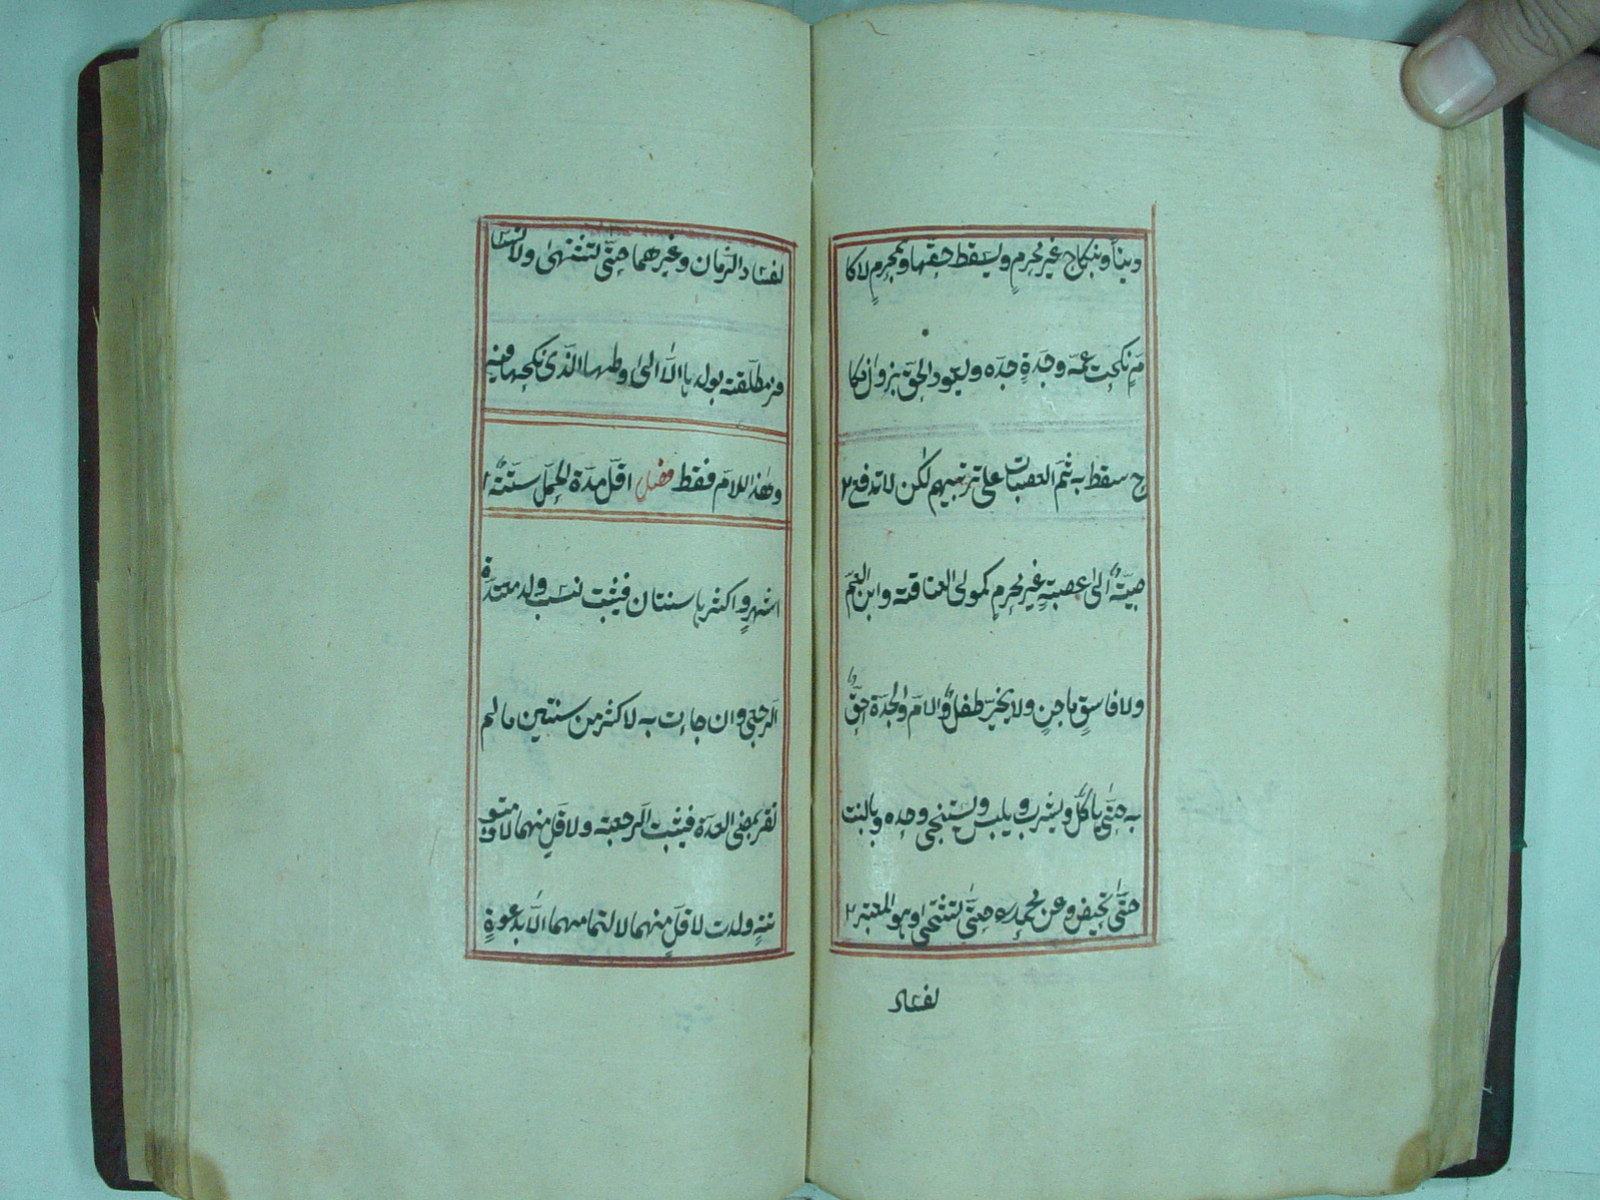 ديناً وبنكاح غير محرم وليسقط حقها وبمحرم لا كا
م نكحت عمه وجدة جده وليعود الحق بزوال نكا
ح سقط به ثم العصبات على ترتيبهم لكن لا تدفع
صبية الى عصبة غير محرم كمولى العتاقة وابن العم
ولا فاسق ماجن ولا يخير طفل والام والجدة احق
به حتى ياكل ويشرب ويلبس ويستنجى وحده وبالبنت
حتى تحيض وعن محمد حتى تشتهى وهو المعتبر
لفساد
لفساد الزمان وغيرهما حتى تشتهى ولا تسا
فر مطلقة بولدها الا الى وطنها الذى نكحها فيه
وهذا للام فقط فصل اقل مدة الحمل ستة
اشهر واكثرها سنتان فيثبت نسب ولد معتدة
الرجعى وان جاءت به لاكثر من سنتين مالم
تقر بمضى العدة فيثبت الرجعة ولاقل منهما لا متو
تة ولدت لاقل منهما لا لتمامهما الا بدعوة